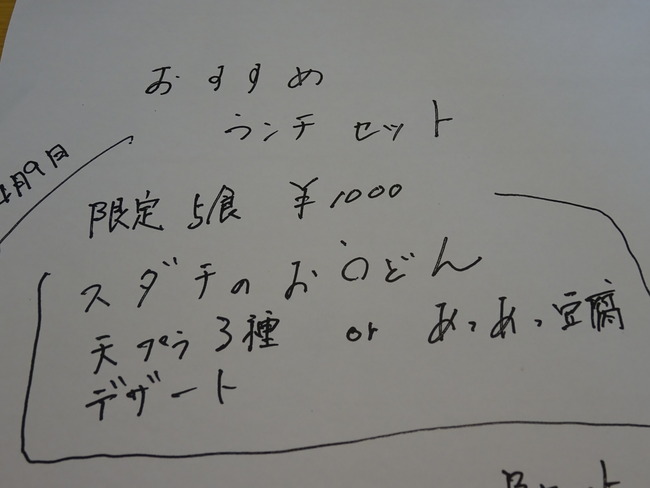 おすすめ
ランチ セット
月9日
限定 5食 ¥1000
スダチのおうどん
天プラ3種 or あつあつ豆腐
デザート